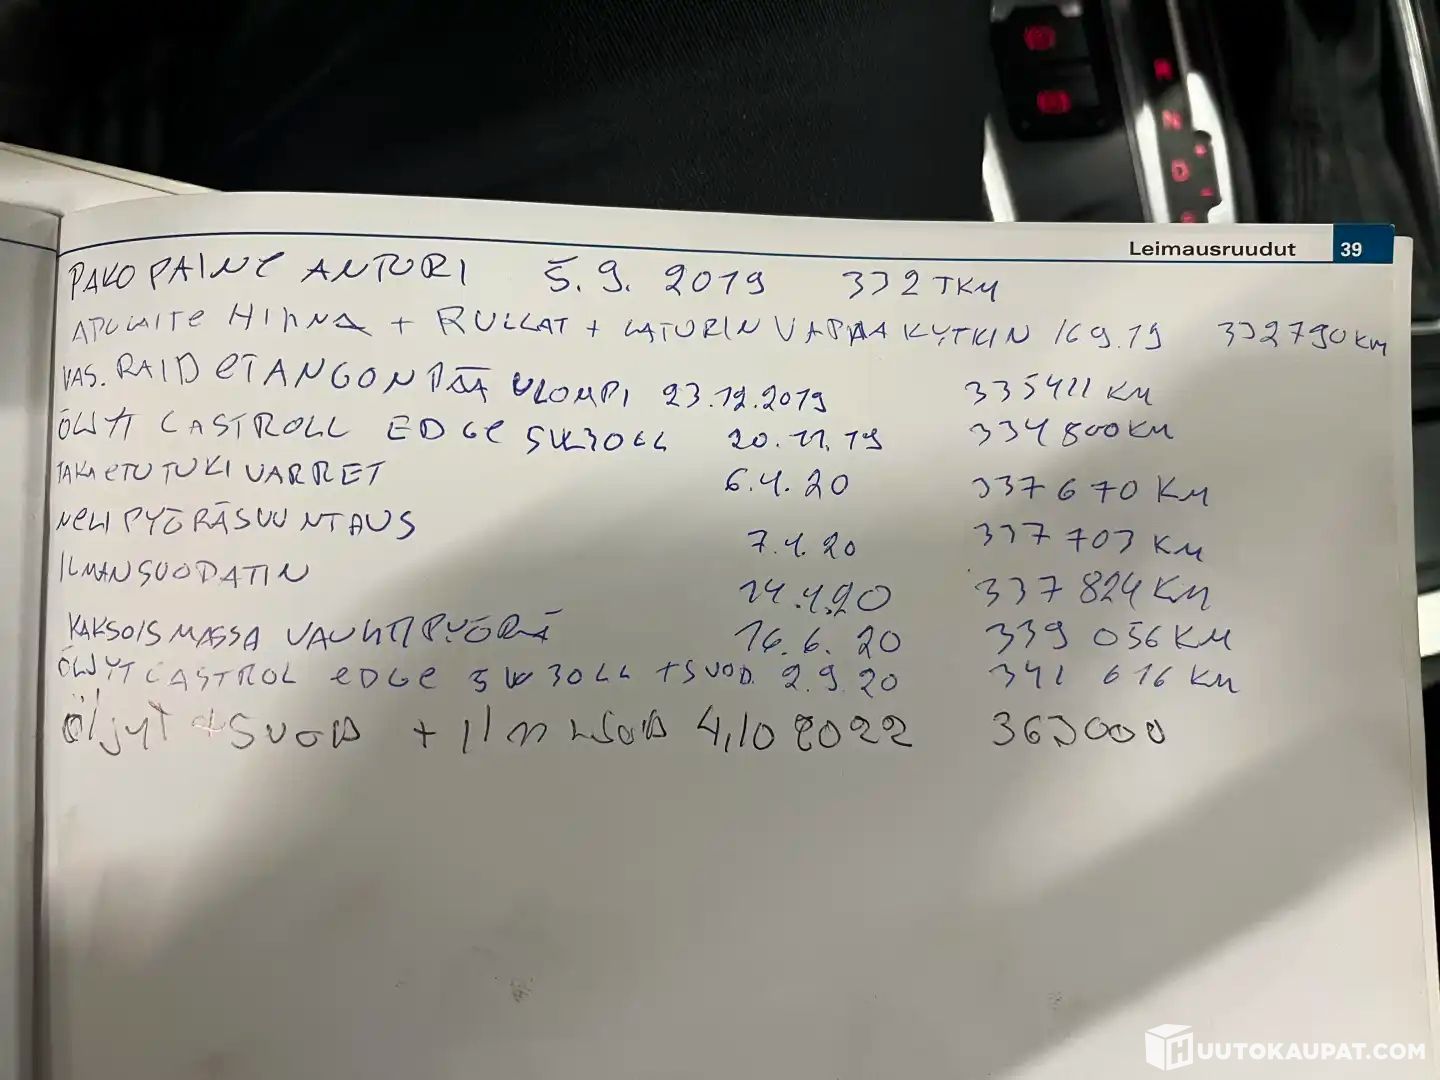 N
D
+
-
S
Leimausruudut 39
PAKOPAINE ANTURI 5.9. 2019 332 TKM
APULAITE HIHNA + RULLAT + LATURIN VAPAA KYTKIN 16 9.19 332790 KM
VAS. RAIDETANGON PÄÄ ULOMPI 23.12.2019 335411 KM
ÖLJYT CASTROLL EDGE 5W30LL 20.11.19 334 800KM
TAKA ETU TUKIVARRET 6.4.20 337670 KM
NELIPYÖRÄSUUNTAUS 7.4.20 337 703 KM
ILMANSUODATIN 14.4.20 337 824 KM
KAKSOISMASSA VAUHTIPYÖRÄ 16.6.20 339 056 KM
ÖLJYT CASTROL EDGE 5W30LL +SUOD. 2.9.20 341 616 KM
öljyt + SUOD + 4,10 2022 363000
HUUTOKAUPAT.COM